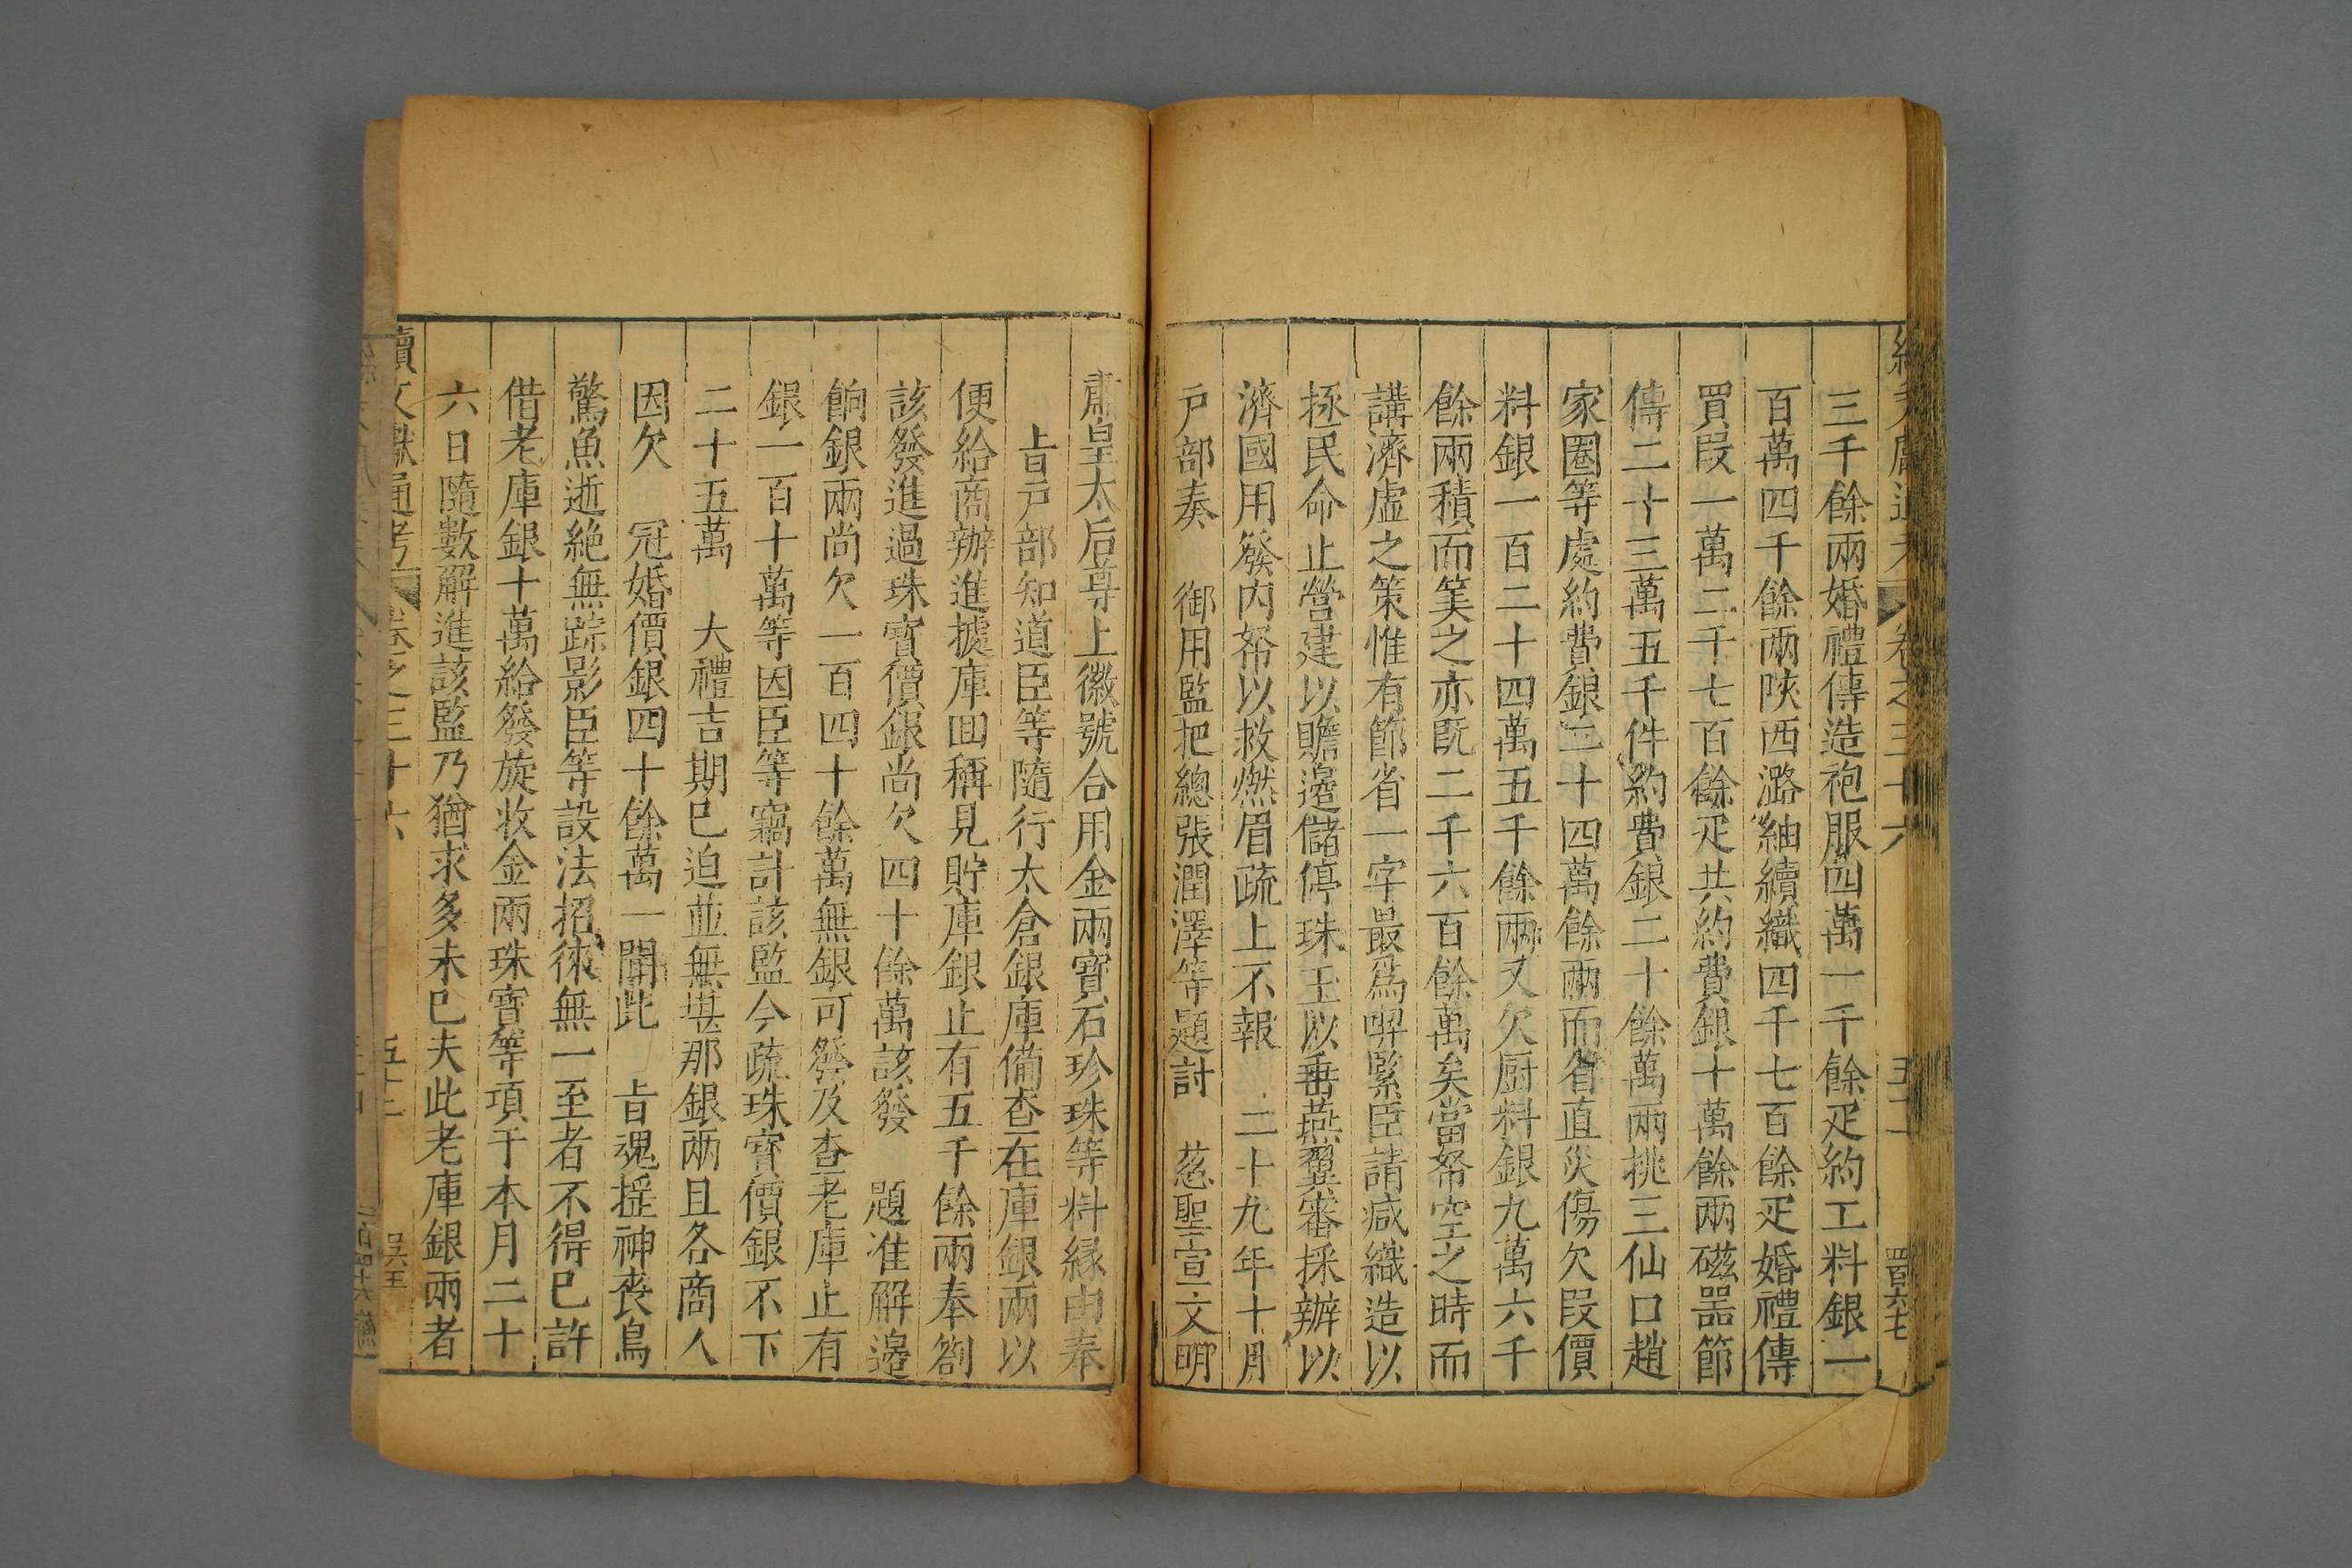 卷之三十六 五十二
三千餘兩婚禮傳造袍服四萬一千餘疋約工料銀一
百萬四千餘兩陝西潞紬續織四千七百餘疋婚禮傳
買叚一萬二千七百餘疋共約費銀十萬餘兩磁噐節
傳二十三萬五千件約費銀二十餘萬兩挑三仙口趙
家圈等處約費銀二十四萬餘兩而省直災傷欠叚價
料銀一百二十四萬五千餘兩又欠厨料銀九萬六千
餘兩積而筭之亦旣二千六百餘萬矣當帑空之時而
講濟虛之策惟有節省一字最爲喫緊臣請减織造以
拯民命止營建以贍邊儲停珠玉以垂燕翼審採辦以
濟國用發内帑以救燃眉疏上不報 二十九年十月
戸部奏 御用監把總張潤澤等題討 慈聖宣文明
肅皇太后尊上徽號合用金兩寳石珍珠等料緣由奉
旨戸部知道臣等隨行太倉銀庫備查在庫銀兩以
便給商辦進據庫囬稱見貯庫銀止有五千餘兩奉劄
該發進過珠寳價銀尚欠四十餘萬該發 題准解邊
餉銀兩尚欠一百四十餘萬無銀可發及查老庫止有
銀一百十萬等因臣等竊計該監今疏珠寳價銀不下
二十五萬 大禮吉期已迫並無堪那銀兩且各商人
因欠 冠婚價銀四十餘萬一聞此 旨魂揺神丧鳥
驚魚逝絶無踪影臣等設法招徠無一至者不得已許
借老庫銀十萬給發旋收金兩珠寳等項于本月二十
六日隨數解進該監乃猶求多未已夫此老庫銀兩者
續文獻通考 卷之三十六 五十三